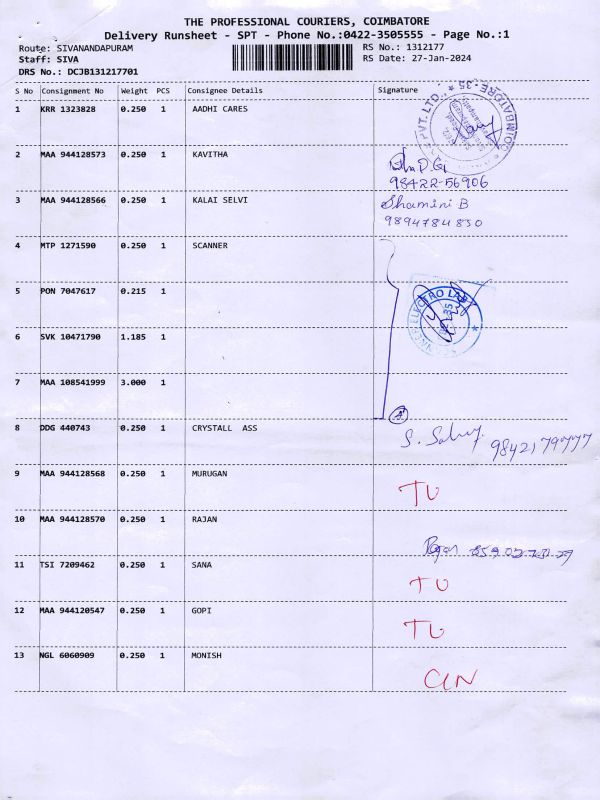 THE PROFESSIONAL COURIERS, COIMBATORE
Delivery Runsheet - SPT - Phone No.:0422-3505555 - Page No.:1
Route: SIVANANDAPURAM RS No.: 1312177
Staff: SIVA RS Date: 27-Jan-2024
DRS No.: DCJB131217701
S No Consignment No Weight PCS Consignee Details Signature
1 KRR 1323828 0.250 1 AADHI CARES
PVT. LTD. * COIMBATORE-35
2 MAA 944128573 0.250 1 KAVITHA
98422-56906
3 MAA 944128566 0.250 1 KALAI SELVI Shamini B
9894784830
4 MTP 1271590 0.250 1 SCANNER
5 PON 7047617 0.215 1
ELECTRO LAB
6 SVK 10471790 1.185 1
7 MAA 108541999 3.000 1
4
8 DDG 440743 0.250 1 CRYSTALL ASS
9842179777
9 MAA 944128568 0.250 1 MURUGAN TU
10 MAA 944128570 0.250 1 RAJAN
Rajan
11 TSI 7209462 0.250 1 SANA TU
12 MAA 944120547 0.250 1 GOPI TU
13 NGL 6060909 0.250 1 MONISH CLN